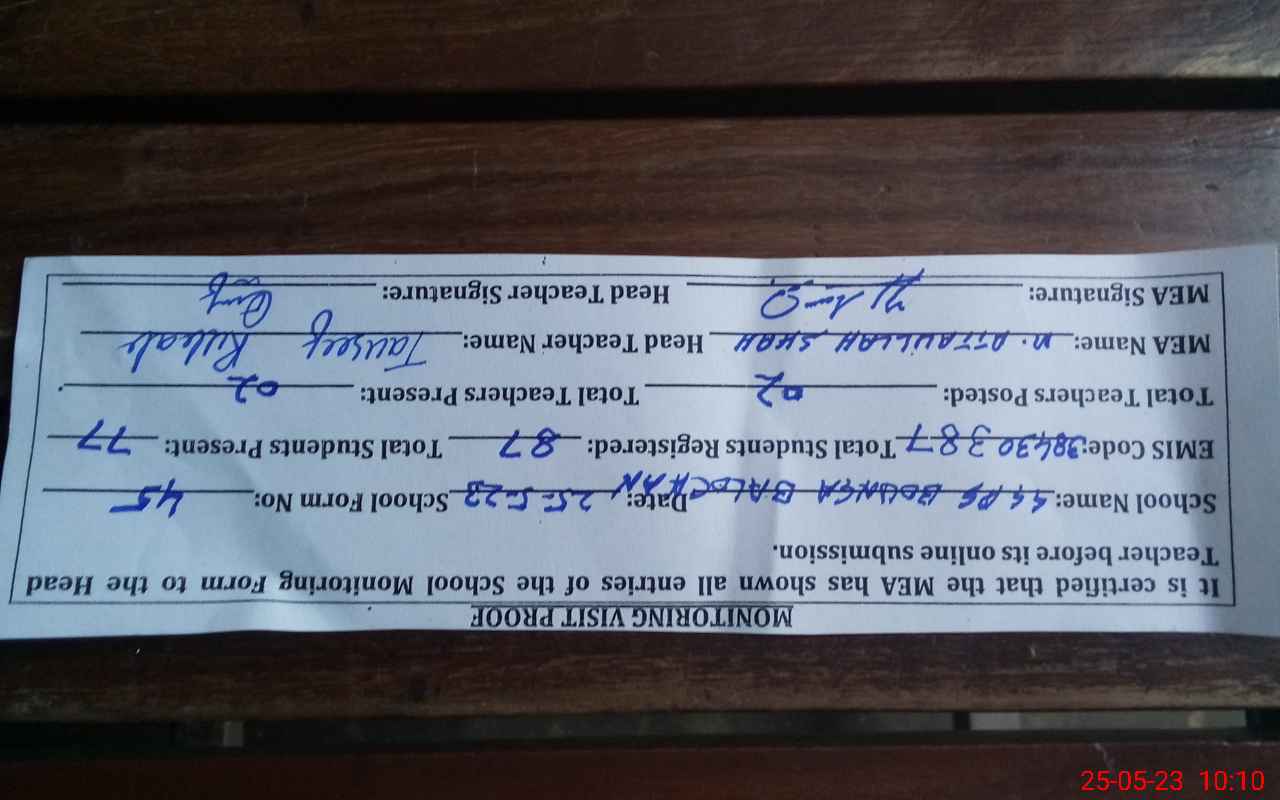 MONITORING VISIT PROOF
It is certified that the MEA has shown all entries of the School Monitoring Form to the Head
Teacher before its online submission.
School Name: BOUNGA BALOCHAN Date: 25-5-23 School Form No: 45
EMIS Code: 38430387 Total Students Registered: 87 Total Students Present: 77
Total Teachers Posted: 02 Total Teachers Present: 02
MEA Name: M. ATTAULLAH SHAH Head Teacher Name: Tauseef
MEA Signature: Head Teacher Signature:
25-05-23 10:10